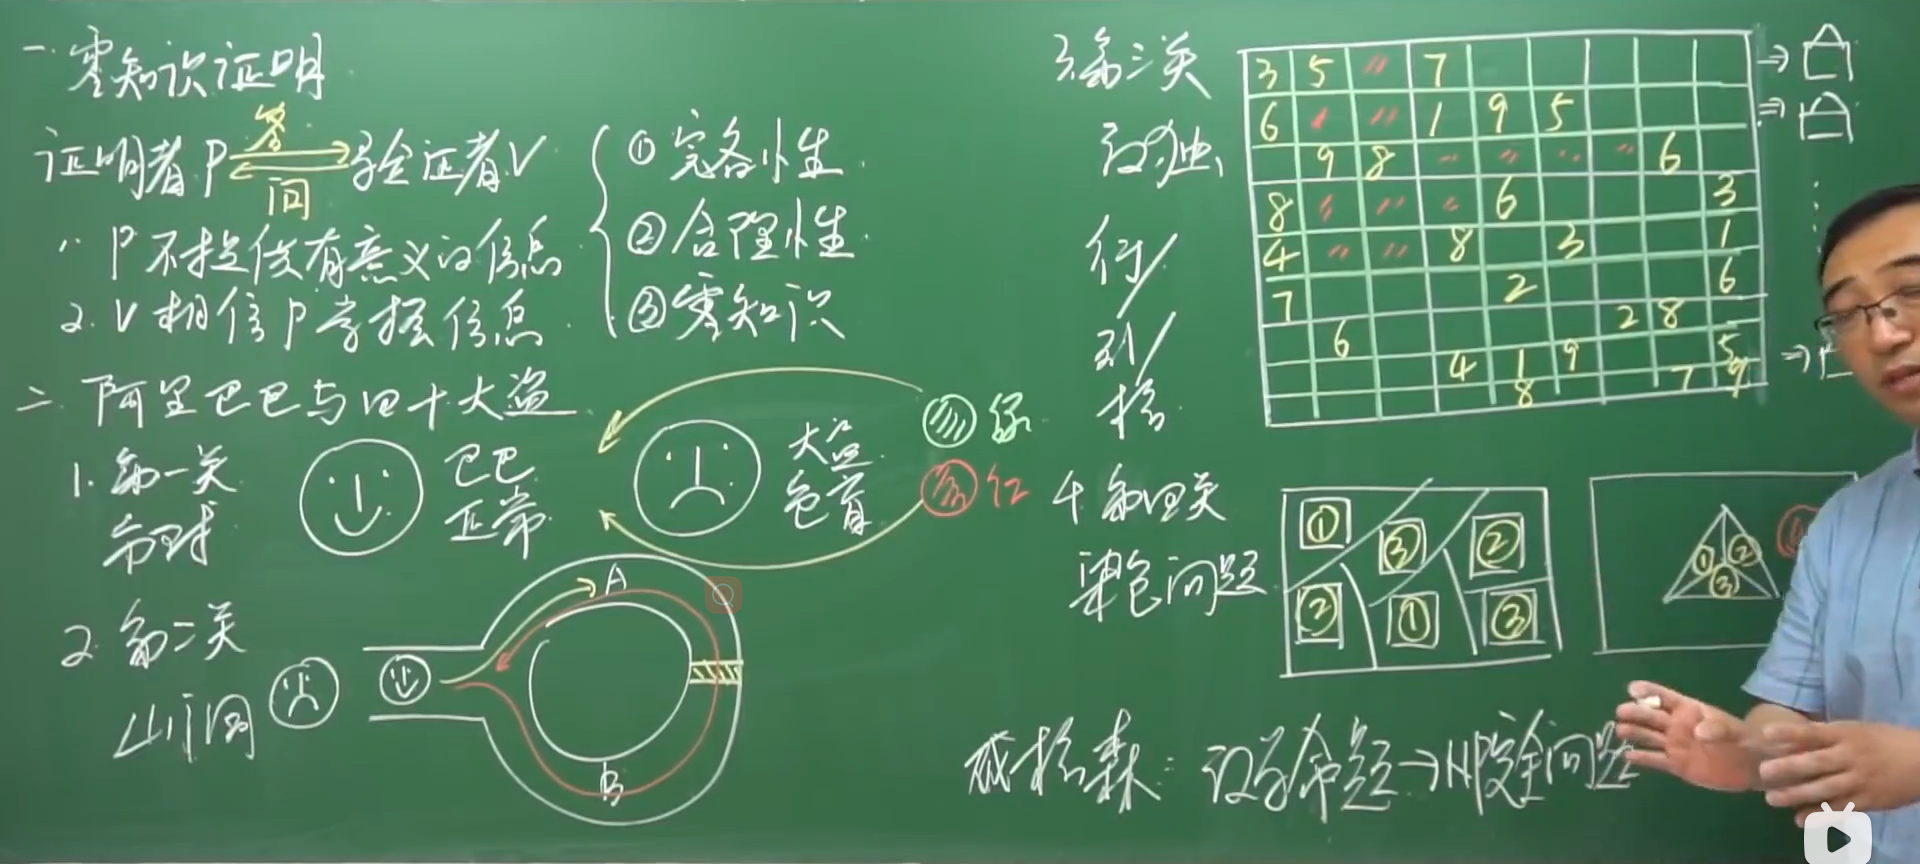 一.零知识证明
证明者P 答 问 验证者V
1. P不提供有意义的信息
2. V相信P掌握信息
①完备性
②合理性
③零知识
二.阿里巴巴与四十大盗
1. 第一关
巴巴
正常
大盗
色盲
绿
红
2. 第二关
山洞
A
B
3.第三关
数独
行/
列/
格
3 5 7
6 1 9 5
9 8 6
8 6 3
4 8 3 1
7 2 6
6 2 8
4 1 9 5
8 7 9
4 第四关
染色问题
① ③ ②
② ① ③
① ②
③
威格森：数学命题→NP完全问题